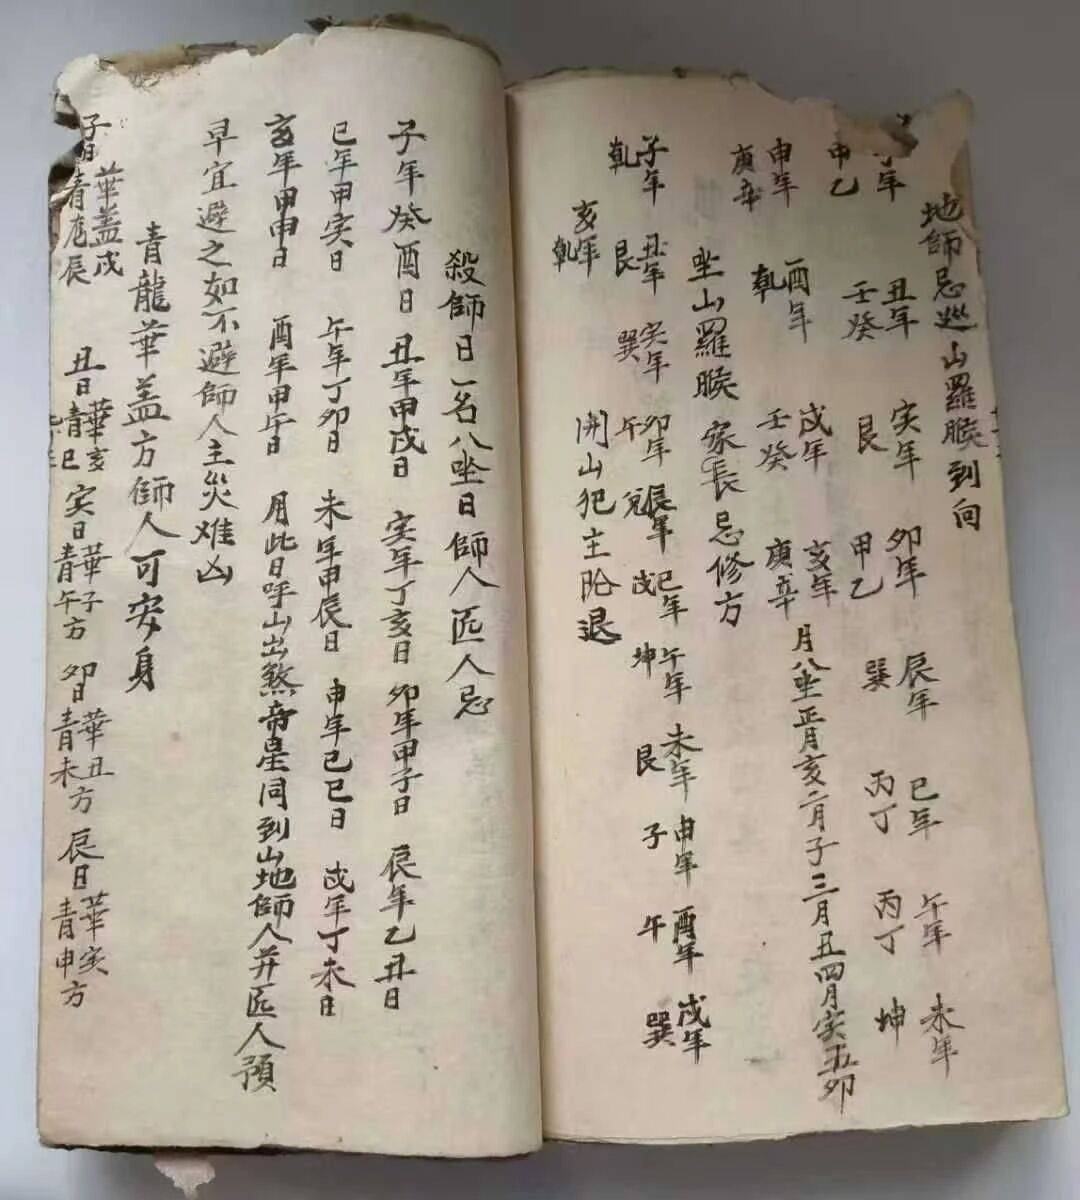 地師忌巡山羅睺到向
子年 丑年 寅年 卯年 辰年 巳年 午年 未年
甲乙 壬癸 艮 甲乙 巽 丙丁 丙丁 坤
申年 酉年 戌年 亥年 月八坐正月亥二月子三月丑四月寅五卯
庚辛 乾 壬癸 庚辛
坐山羅睺 家長忌修方
子年 丑年 寅年 卯年 辰年 巳年 午年 未年 申年 酉年 戌年
乾 艮 巽 午 兌 戌 坤 艮 子 午 巽
亥年 開山犯主退
乾
殺師日一名八坐日師人匠人忌
子年癸酉日 丑年甲戌日 寅年丁亥日 卯年甲子日 辰年乙丑日
巳年甲寅日 午年丁卯日 未年甲辰日 申年己巳日 戌年丁未日
亥年甲申日 酉年甲午日 用此日呼山出煞帝星同到山地師人并匠人預
早宜避之如不避師人主災难凶
青龍華盖方師人可安身
子日華盖戌青龙辰 丑日華亥青巳 寅日華子青午方 卯日華丑青未方 辰日華寅青申方